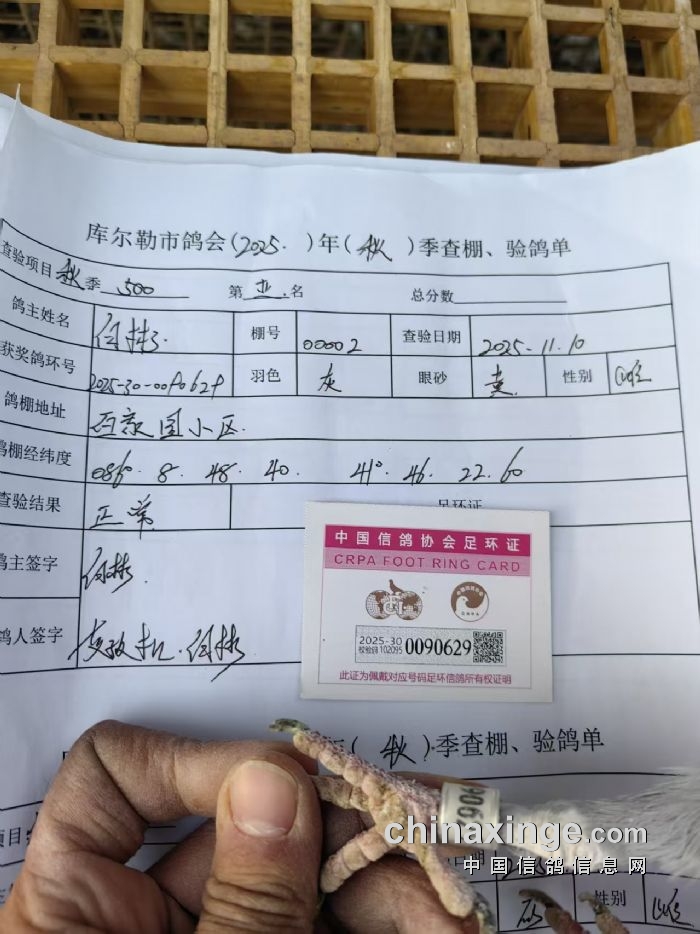 库尔勒市鸽会(2025.)年(秋)季查棚、验鸽单
查验项目 秋季 500 第 名 总分数
鸽主姓名 何彬 棚号 00002 查验日期 2025.11.10
获奖鸽环号 2025-30-0090629 羽色 灰 眼砂 黄 性别 雌
鸽棚地址 百家园小区
鸽棚经纬度 086. 8. 48. 40. 41. 46. 22. 60
查验结果 正常 足环证
鸽主签字 何彬
鸽人签字 何彬
中国信鸽协会足环证
CRPA FOOT RING CARD
2025-30
校验码 102095 0090629
此证为佩戴对应号码足环信鸽所有权证明
年(秋)季查棚、验鸽单
906
chinaxinge.com
中国信鸽信息网
项目
日期
性别 雌